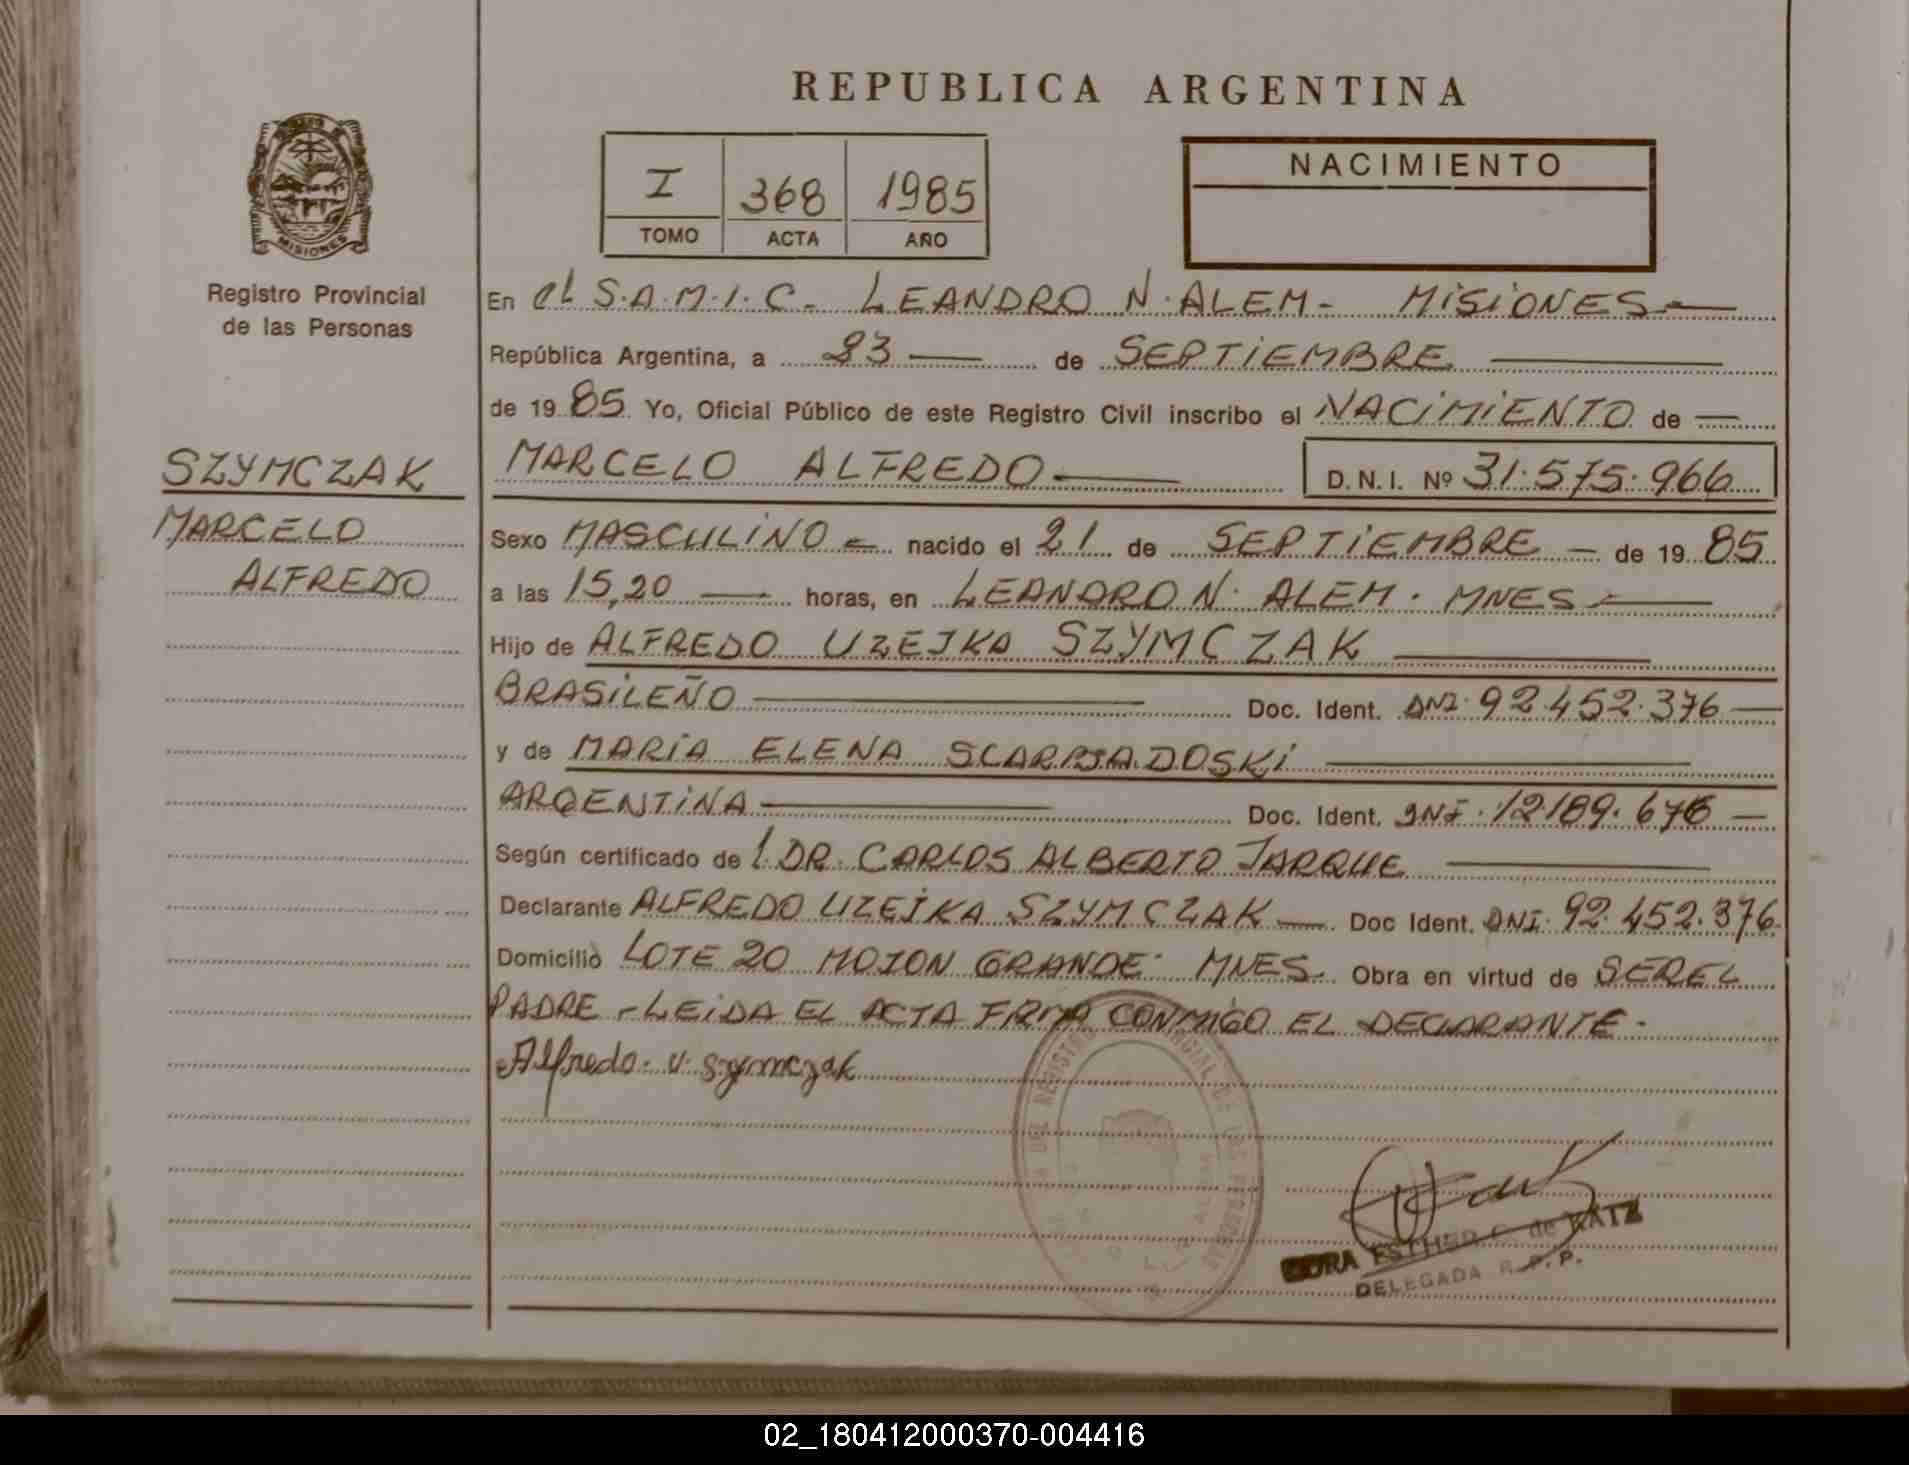 REPUBLICA ARGENTINA
I 368 1985
TOMO ACTA AÑO
NACIMIENTO
MISIONES
Registro Provincial
de las Personas
SZYMCZAK
MARCELO
ALFREDO
En el S.A.M.I.C. LEANDRO N. ALEM - MISIONES
República Argentina, a 23 de SEPTIEMBRE
de 19 85 Yo, Oficial Público de este Registro Civil inscribo el NACIMIENTO de
MARCELO ALFREDO D.N.I. Nº 31.575.966
Sexo MASCULINO nacido el 21 de SEPTIEMBRE de 19 85
a las 15,20 horas, en LEANDRO N. ALEM. MNES
Hijo de ALFREDO UZEJKA SZYMCZAK
BRASILEÑO Doc. Ident. DNI. 92.452.376
y de MARIA ELENA
ARGENTINA Doc. Ident. DNI. 12.189.676
Según certificado de l. DR. CARLOS ALBERTO JARQUE
Declarante ALFREDO UZEJKA SZYMCZAK Doc Ident. DNI. 92.452.376
Domicilio LOTE 20 MOJON GRANDE MNES. Obra en virtud de SER EL
PADRE - LEIDA EL ACTA FIRMA CONMIGO EL DECLARANTE.
Alfredo. U. Szymczak
DORA ESTHER C. de KATZ
DELEGADA R.P.P.
02_180412000370-004416